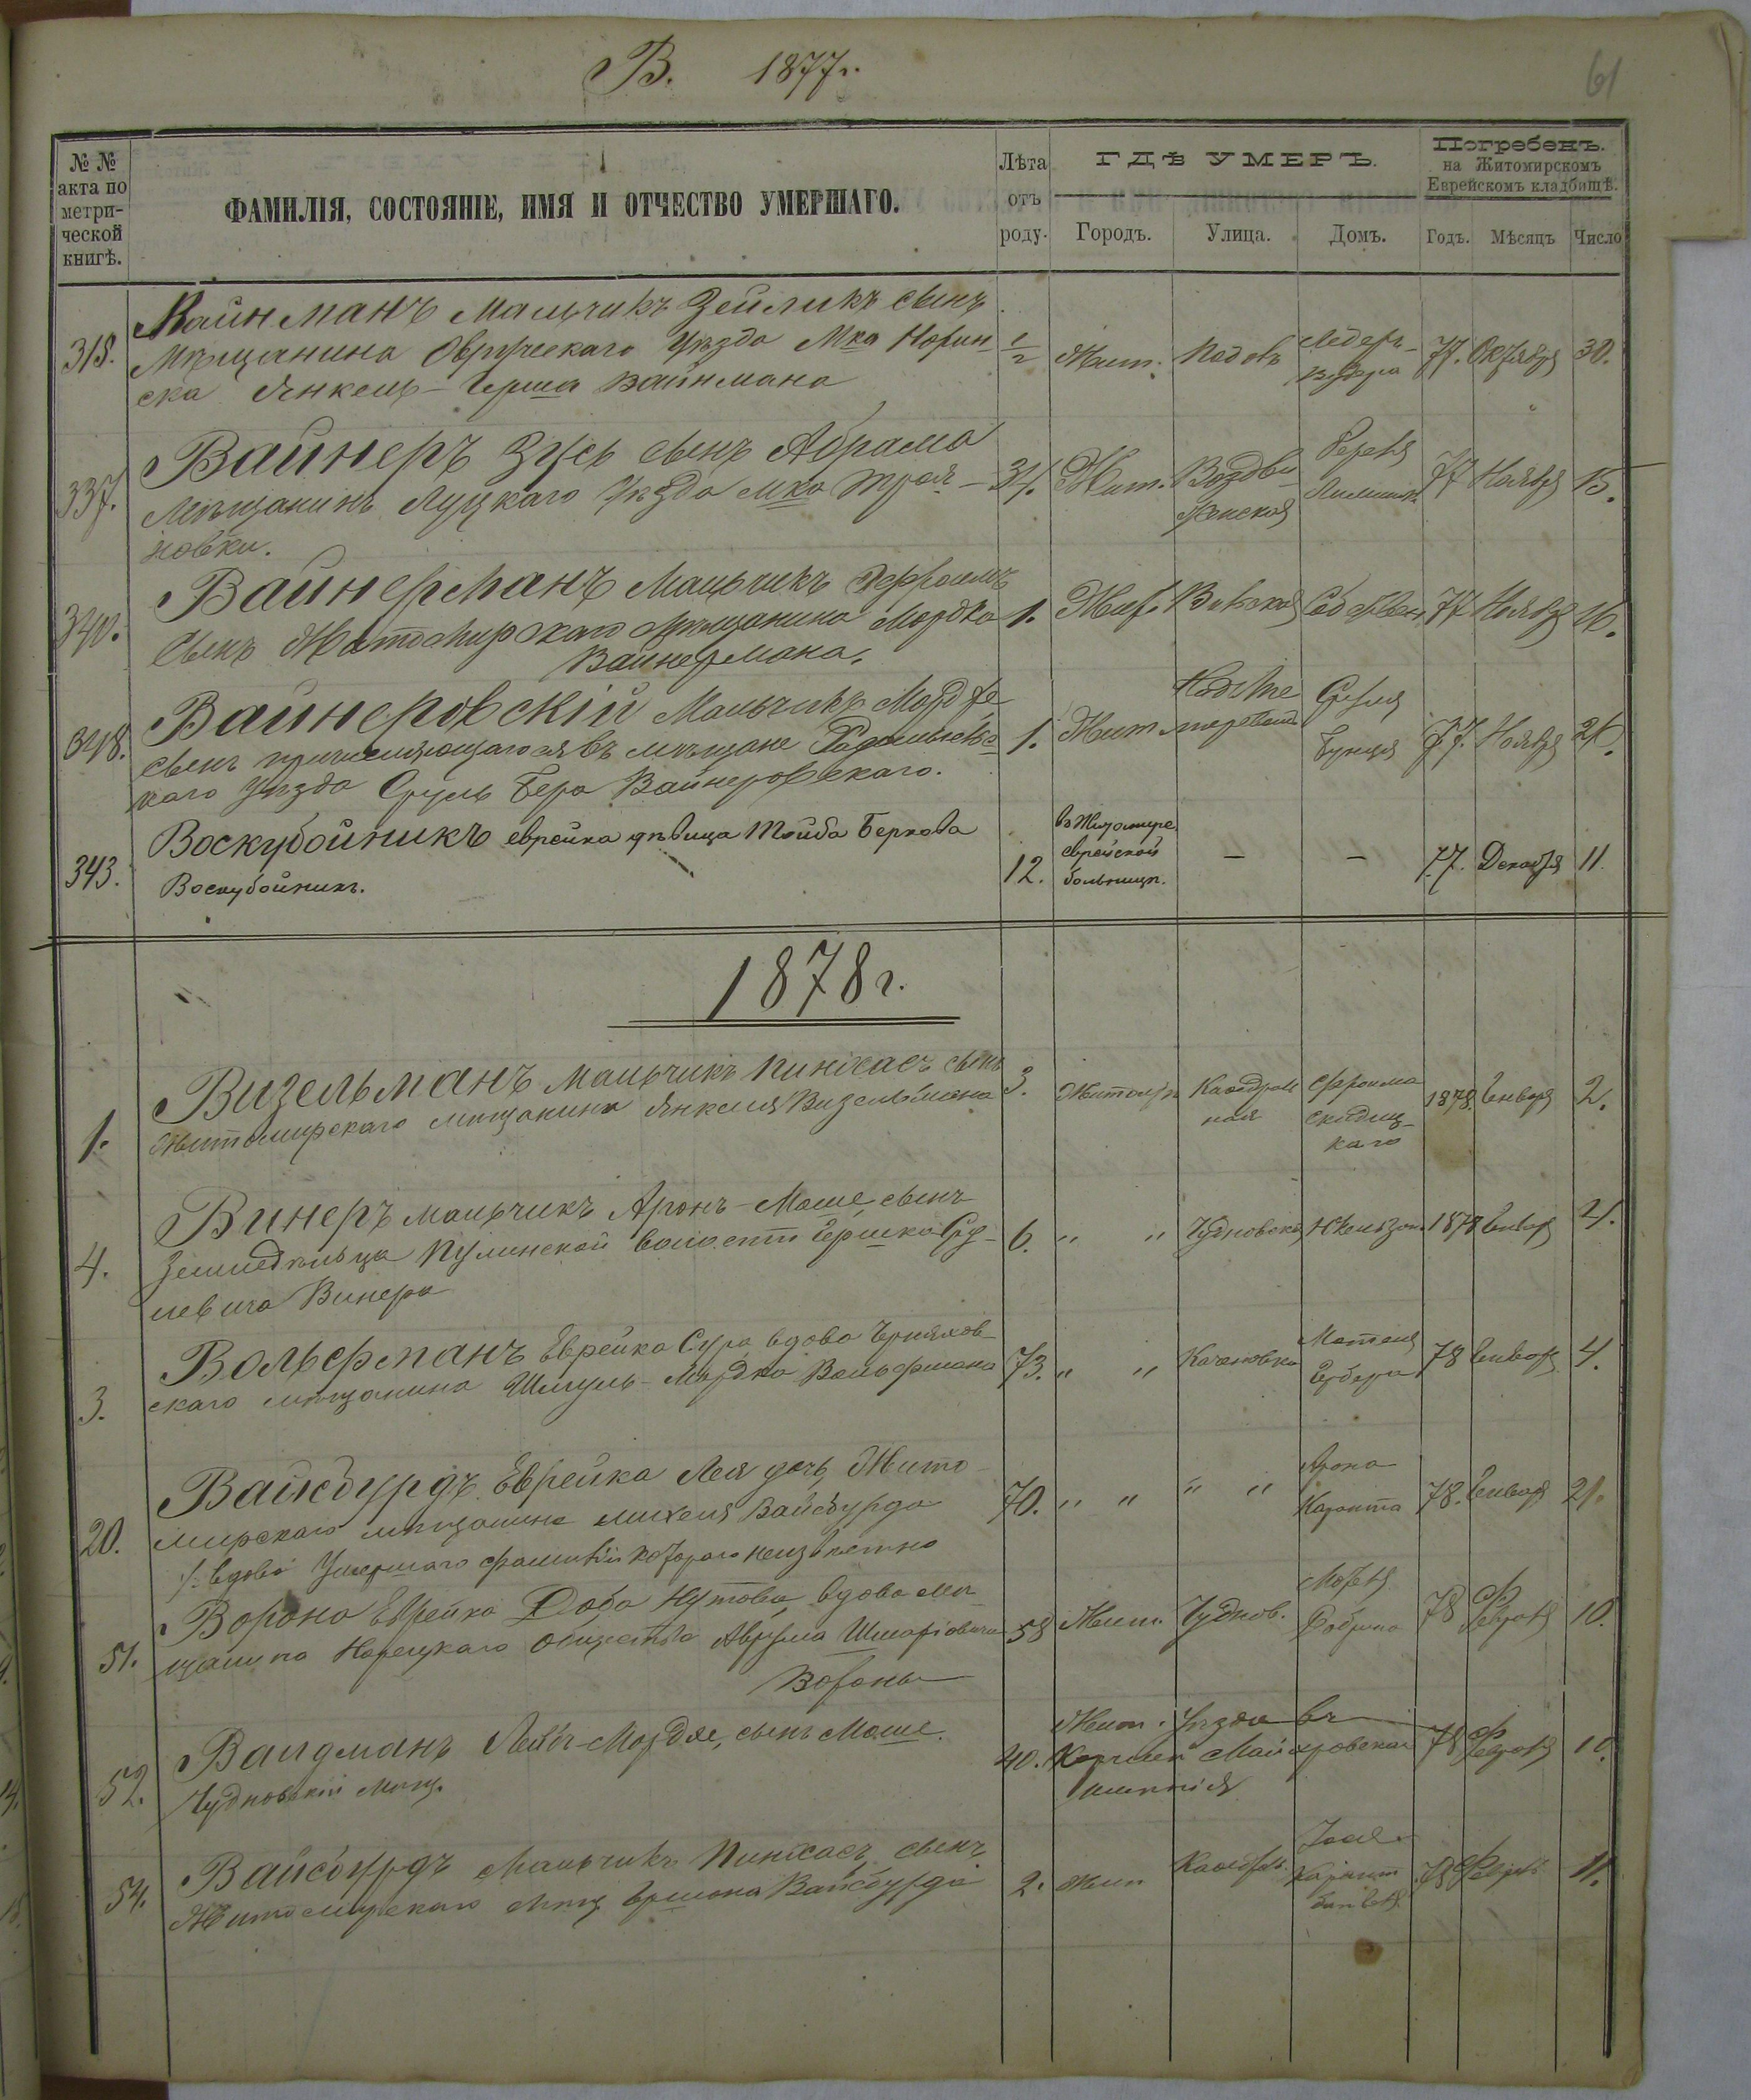 В. 1877 г.
61
№ №
акта по
метри-
ческой
книгѣ.
ФАМИЛІЯ, СОСТОЯНІЕ, ИМЯ И ОТЧЕСТВО УМЕРШАГО.
Лѣта
отъ
роду.
ГДѢ УМЕРЪ.
Городъ. Улица. Домъ.
Погребенъ.
на Житомирскомъ
Еврейскомъ кладбищѣ.
Годъ. Мѣсяцъ Число
318. Вайнманъ мальчикъ Зейликъ сынъ
мѣщанина Овручскаго Уѣзда Мка Норин-
ска Янкель-Герша Вайнмана
1/2 Жит. 77. Октября 30.
337. Вайнеръ Зусь сынъ Абрама
мѣщанинъ Луцкаго Уѣзда мка Трая-
новки.
34. Жит. Воздви-
женская
77 Ноября 15.
340. Вайнерманъ мальчикъ Эфроимъ
сынъ Житомирскаго мѣщанина Мордка
Вайнермана.
1. Жит. 77 Ноября 16.
348. Вайнеровскій мальчикъ Мордхе
сынъ причисляющагося въ мѣщане Радомысль-
скаго Уѣзда Сруль Бера Вайнеровскаго.
1. Жит Сруля
77. Ноября
343. Воскубойникъ еврейка дѣвица Тойба Беркова
Воскубойникъ.
12. въ Житомире
еврейской
больницѣ.
— — 77. Декабря 11.
1878 г.
1. Визельманъ мальчикъ Пинхасъ сынъ
Житомирскаго мѣщанина Янкеля Визельмана
3. Житомиръ Каѳедраль
ная
Эфроима
1878. Января 2.
4. Винеръ мальчикъ Аронъ-Моше сынъ
Земледѣльца Пулинской волости Гершка Сру-
левича Винера
6. " " Чудновская 1878 Января 4.
3. Вольфманъ Еврейка Сура вдова Чернехов-
скаго мѣщанина Шмуль-Мордка Вольфмана
73. " " 78 Января 4.
20. Вайсбурдъ Еврейка Лея дочь Жито-
мирскаго мѣщанина Михеля Вайсбурда
вдова Умершаго фамилія котораго неизвѣстно
70. " " " " Арона
78. Января 21.
51. Ворона Еврейка Доба Нутова вдова мѣ-
щанина Корецкаго общества Аврума Шмаріовича
Вороны
58 Жит. Чуднов. 78 Февраля 10.
52. Валдманъ Лейб-Мордхе, сынъ Моше
Чудновскій мѣщ.
40. Жит. Уѣзда въ
78 Февраля
54. Вайсбурдъ мальчикъ Пинхасъ сынъ
Житомирскаго мѣщ. Вайсбурда
2. Жит Каѳедр. 78 Февраля 11.